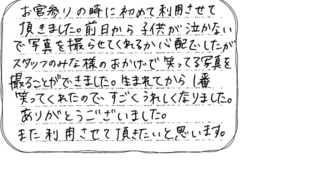 お宮参りの時に初めて利用させて
頂きました。前日から子供が泣かない
で写真を撮らせてくれるか心配でしたが
スタッフのみな様のおかげで笑ってる写真を
撮ることができました。生まれてから1番
笑ってくれたので、すごくうれしくなりました。
ありがとうございました。
また利用させて頂きたいと思います。